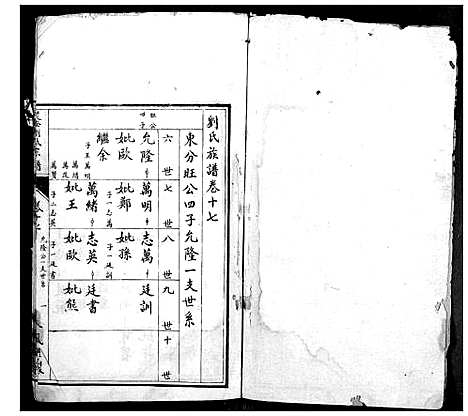 劉氏族譜卷十七
東分旺公四子允隆一支世系
六世 七世 八世 九世 十世
旺公四子
允隆 妣歐 繼余
子五萬明 萬緒 萬茂 萬賢
萬明 妣鄭 子一志萬
萬緒 妣王 子一志英
志萬 妣孫 子一廷訓
志英 妣歐 子一廷書
廷訓
廷書 妣熊
卷十七 允隆公一支世系 一